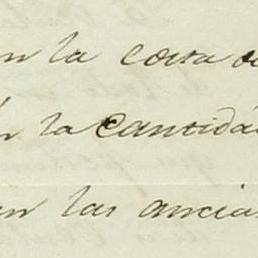 n la costa d
n la cantida
an las ancia